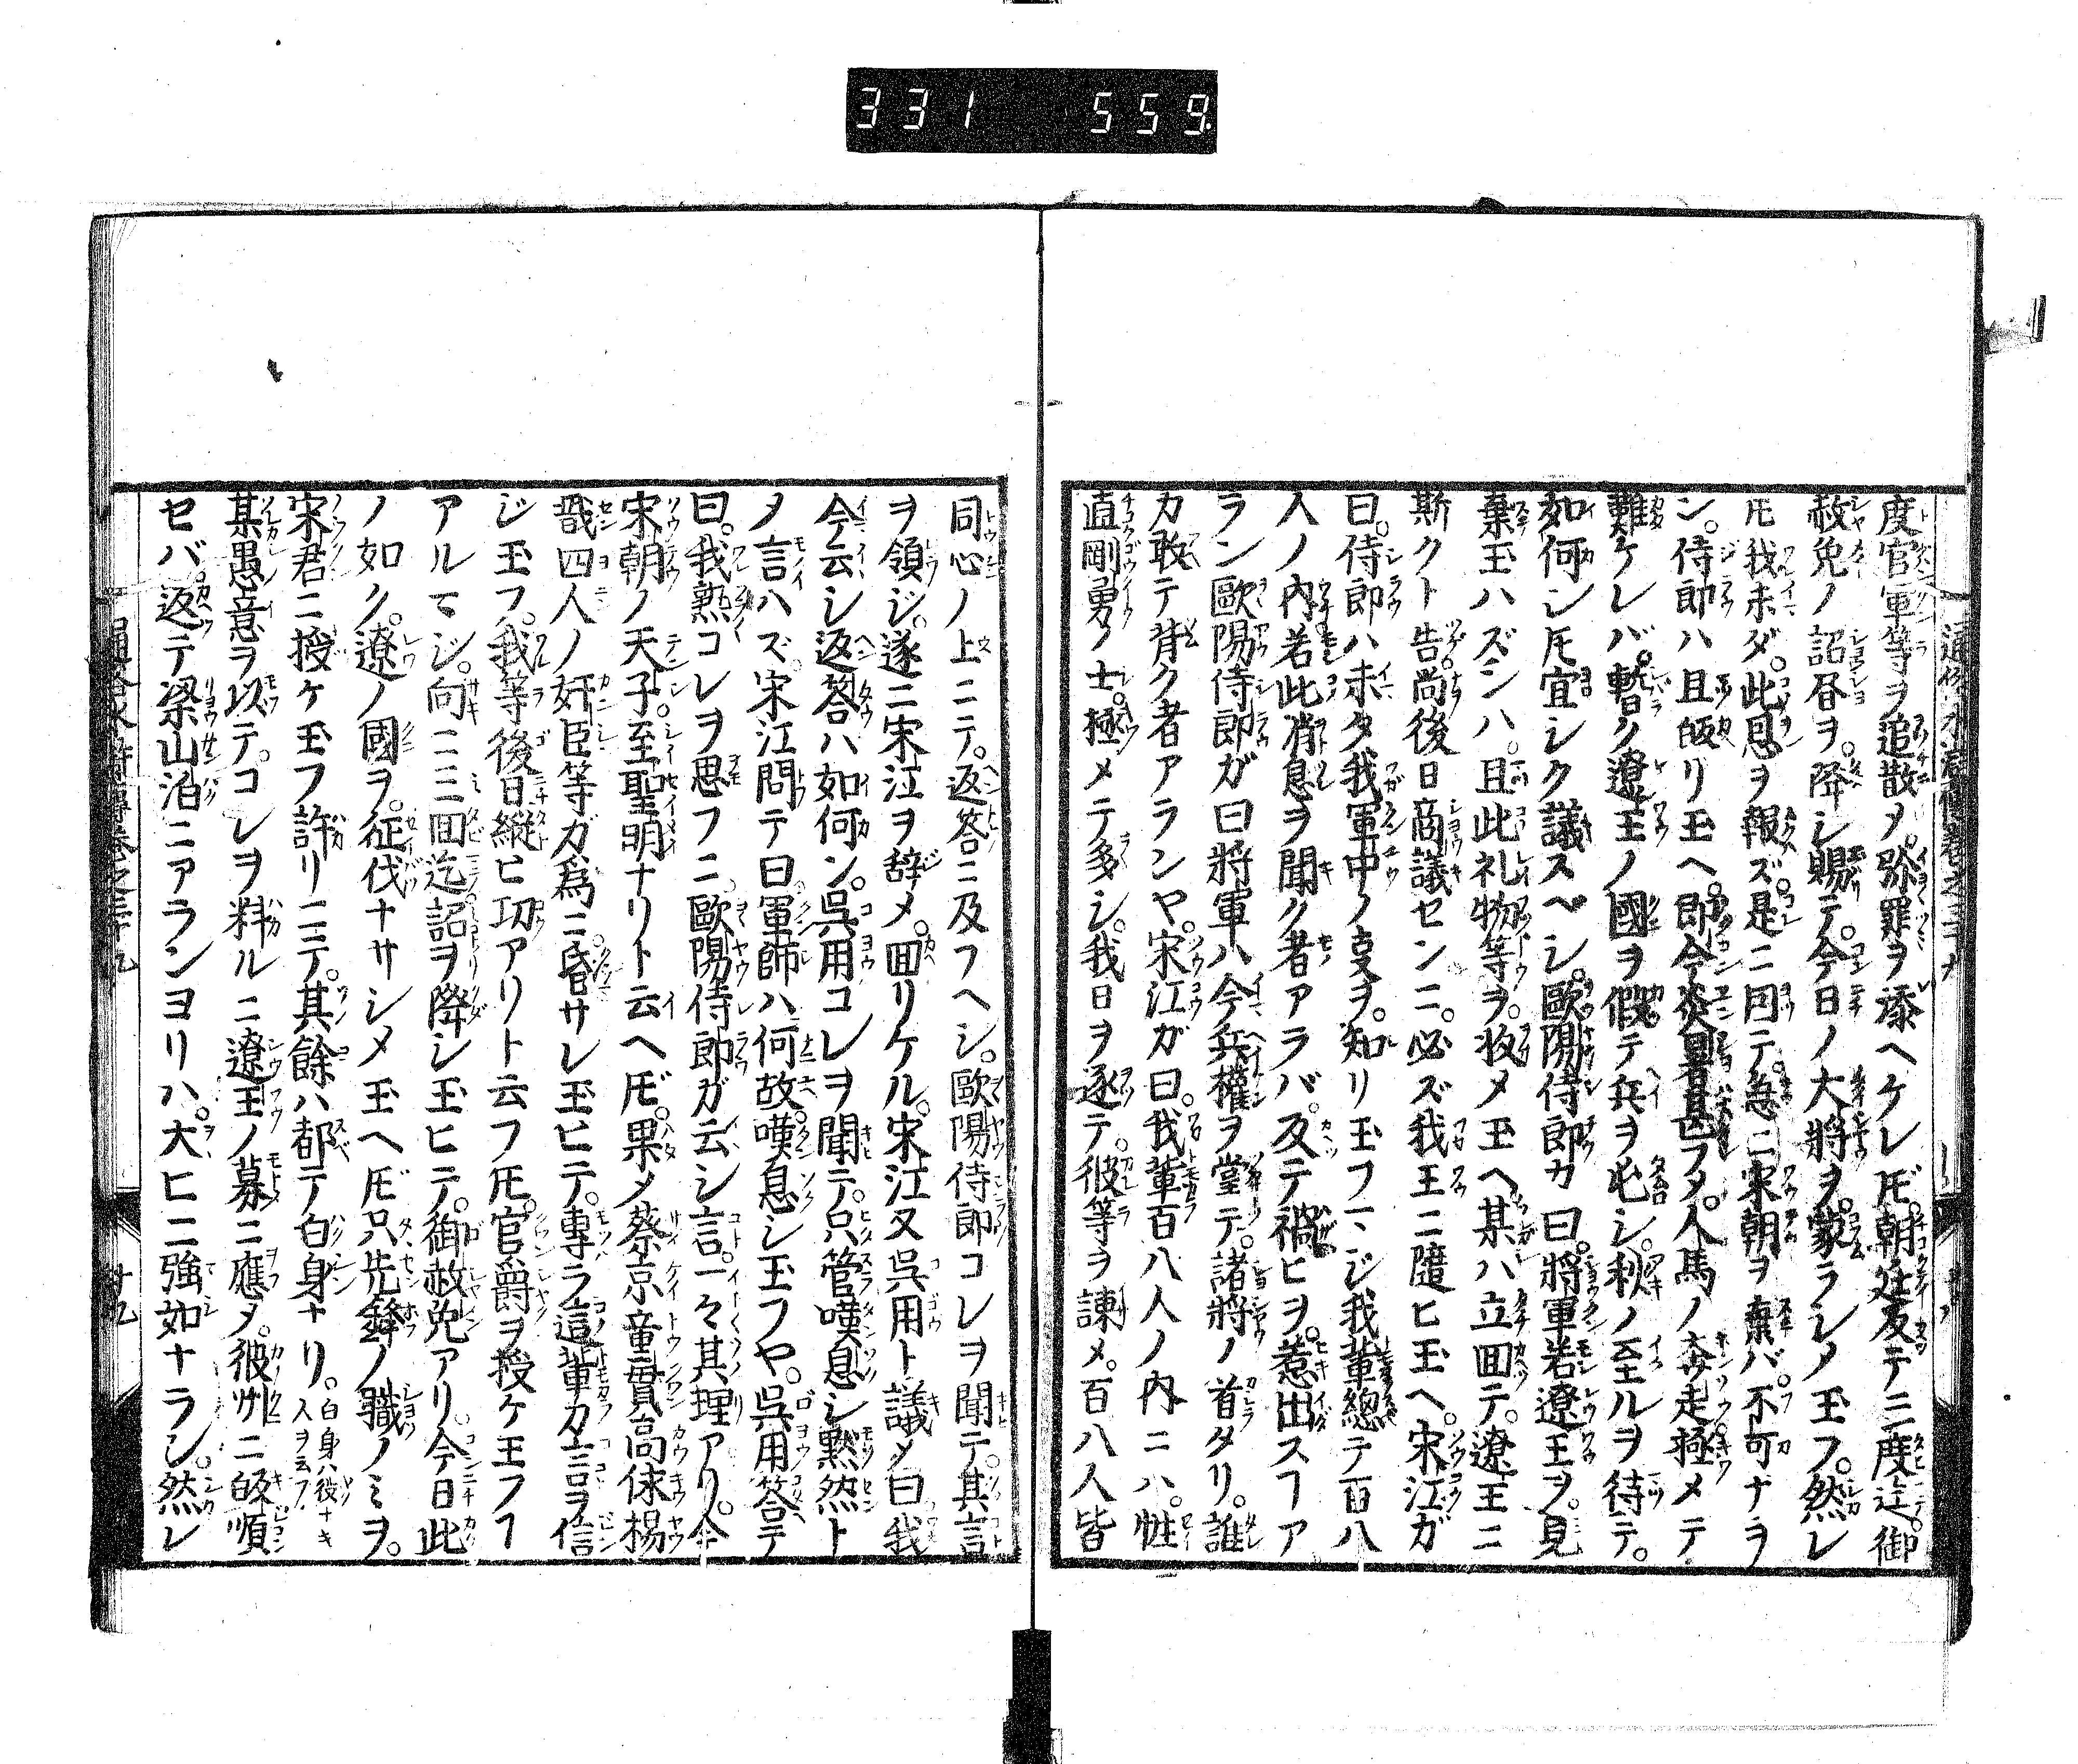 331 559
度官軍等ヲ追散メ。弥罪ヲ添ヘケレ𪜈。朝廷反テ三度迄。御
赦免ノ詔書ヲ。降シ賜テ。今日ノ大將ヲ。蒙ラシメ玉フ。然レ
𪜈我未ダ。此恩ヲ報ズ。是ニ因テ。急ニ宋朝ヲ棄バ。不可ナラ
ン。侍郎ハ且皈リ玉ヘ。即今炎暑甚フメ。人馬ノ奔走極メテ
難ケレバ。暫ク遼王ノ國ヲ假テ兵ヲ屯シ。秋ノ至ルヲ待テ。
如何ン𪜈宜シク議スベシ。歐陽侍郎カ曰。將軍若遼王ヲ。見
棄玉ハズシハ。且此礼物等ヲ。收メ玉ヘ某ハ立回テ。遼王ニ
斯クト告。尚後日商議センニ。必ズ我王ニ隨ヒ玉ヘ。宋江ガ
曰。侍郎ハ未タ我軍中ノ叓ヲ。知リ玉フマジ我輩總テ百八
人ノ內。若此消息ヲ聞ク者アラバ。反テ禍ヒヲ。惹出スヿア
ラン歐陽侍郎ガ曰將軍ハ今兵權ヲ掌テ。諸將ノ首タリ。誰
カ敢テ背ク者アランヤ。宋江ガ曰。我輩百八人ノ內ニハ。性
直剛勇ノ士。極メテ多シ。我日ヲ逐テ。彼等ヲ諫メ。百八人皆
同心ノ上ニテ。返答ニ及フヘシ。歐陽侍郎コレヲ聞テ。其言
ヲ領ジ。遂ニ宋江ヲ辞メ。回リケル。宋江又呉用ト議メ曰我
今云シ返答ハ如何ン。呉用コレヲ聞テ。只管嘆息シ黙然ト
メ言ハズ。宋江問テ曰軍師ハ何故。嘆息シ玉フヤ。呉用答テ
曰。我熟コレヲ思フニ。歐陽侍郎ガ云シ言。一々其理アリ。今
宋朝ノ天子。至聖明ナリト云ヘ𪜈。果メ蔡京童貫高俅楊
戩四人ノ奸臣等ガ爲ニ昏サレ玉ヒテ。專ラ這輩カ言ヲ信
ジ玉フ。我等後日縱ヒ功アリト云フ𪜈。官爵ヲ授ケ王フヿ
アルマジ。向ニ三回迄詔ヲ降シ玉ヒテ。御赦免アリ。今日此
ノ如ク。遼ノ國ヲ。征伐ナサシメ玉ヘ𪜈只先鋒ノ職ノミヲ。
宋君ニ授ケ玉フ許リニテ。其餘ハ都テ白身ナリ。白身ハ役ナキ人ヲ云フ
某愚意ヲ以テ。コレヲ料ルニ遼王ノ募ニ應メ。彼州ニ皈順
セバ。返テ梁山泊ニアランヨリハ。大ヒニ強如ナラン。然レ